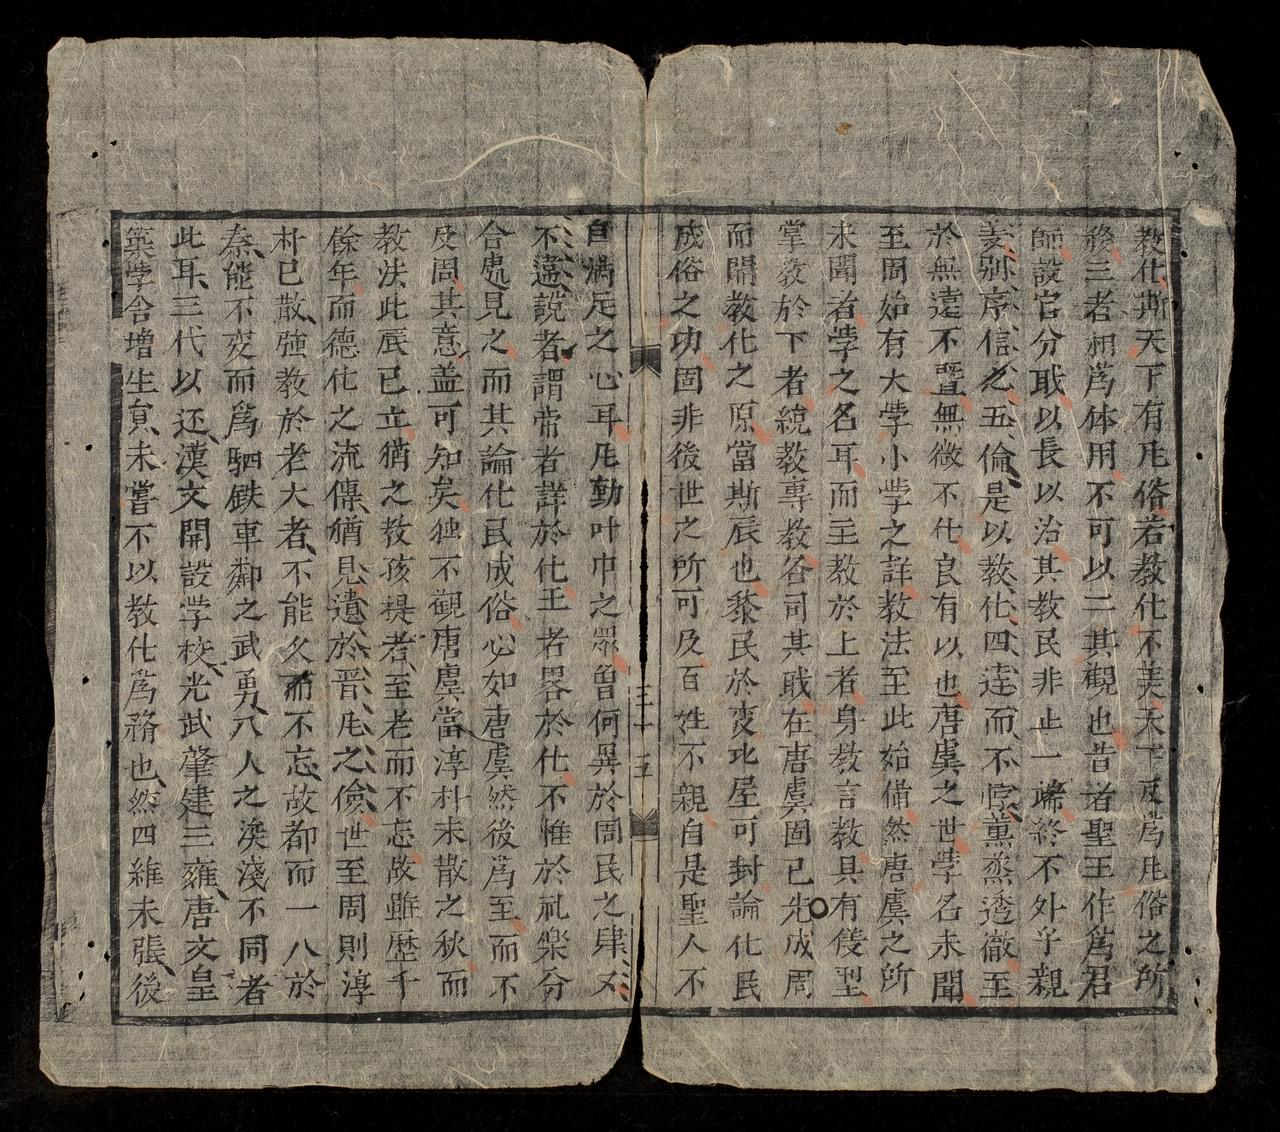 教化斯天下有凬俗若教化不美天下反為凬俗之所
移三者相為体用不可以二其觀也昔者聖王作為君
師設官分职以長以治其教民非止一端終不外乎親
義别序信之五倫是以教化四達而不悖薰烝透徹至
於無遠不曁無微不化良有以也唐虞之世學名未聞
至周始有大學小學之詳教法至此始備然唐虞之所
未聞者學之名耳而至教於上者身教言教具有儀型
掌教於下者統教專教各司其职在唐虞固已先成周
而開教化之原當斯辰也黎民於变比屋可封論化民
成俗之功固非後世之所可及百姓不親自是聖人不
自滿足之心耳凬動叶中之眾曾何異於周民之肆又
不違說者謂帝者詳於化王者畧於化不惟於礼樂分
合處見之而其論化民成俗心如唐虞然後為至而不
及周其意盖可知矣独不觀唐虞當淳朴未散之秋而
教法此辰已立猶之教孩提者至老而不忘故雖歷千
餘年而德化之流傳猶見遺於晋凬之儉世至周則淳
朴已散强教於老大者不能久而不忘故都而一八於
秦能不变而為駟鉄車鄰之武勇八人之淡淺不同者
此耳三代以还漢文開設学校光武肇建三雍唐文皇
築学舍增生員未嘗不以教化為務也然四維未張後
三十五